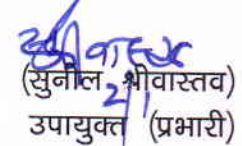 (सुनील श्रीवास्तव)
उपायुक्त (प्रभारी)